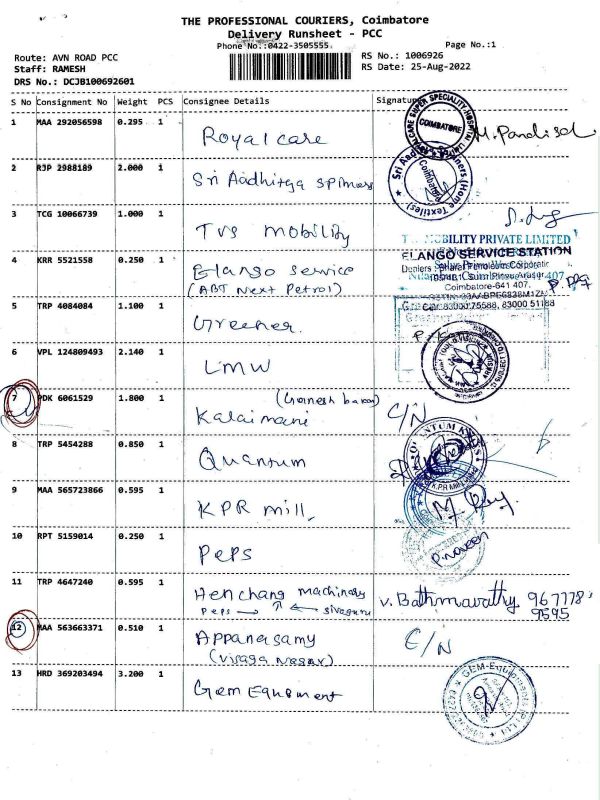 THE PROFESSIONAL COURIERS, Coimbatore
Delivery Runsheet - PCC
Phone No.:0422-3505555.
Page No.:1
Route: AVN ROAD PCC
RS No.: 1006926
Staff: RAMESH
RS Date: 25-Aug-2022
DRS No.: DCJB100692601
S No Consignment No Weight PCS Consignee Details Signature
1 MAA 292056598 0.295 1 Royal care
COIMBATORE
M. Pandi
2 RJP 2988189 2.000 1 Sri Aadhitya Spinners
Sri (Home Textiles) Coimbatore
3 TCG 10066739 1.000 1 TVS mobility
MOBILITY PRIVATE LIMITED
4 KRR 5521558 0.250 1 Elango Service
(ABT Next Petrol)
ELANGO SERVICE STATION
Coimbatore-641 407.
Cell: 83000 75588, 83000 51188
5 TRP 4084084 1.100 1 Greener.
6 VPL 124809493 2.140 1 LMW
7 PDK 6061529 1.800 1 Kalaimani
C/N
8 TRP 5454288 0.850 1 Quantum
QUANTUM KNITS
9 MAA 565723866 0.595 1 KPR mill.
10 RPT 5159014 0.250 1 Peps
P. naveen
11 TRP 4647240 0.595 1 Henchang machinery
Peps
V. Bathmavathy 967778
9595
12 MAA 563663371 0.510 1 Appanasamy
C/N
13 HRD 369203494 3.200 1 Gem Equpment
GEM-Equipments